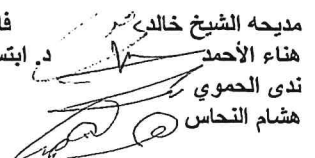 مديحه الشيخ خالد
هناء الأحمد د.
ندى الحموي
هشام النحاس